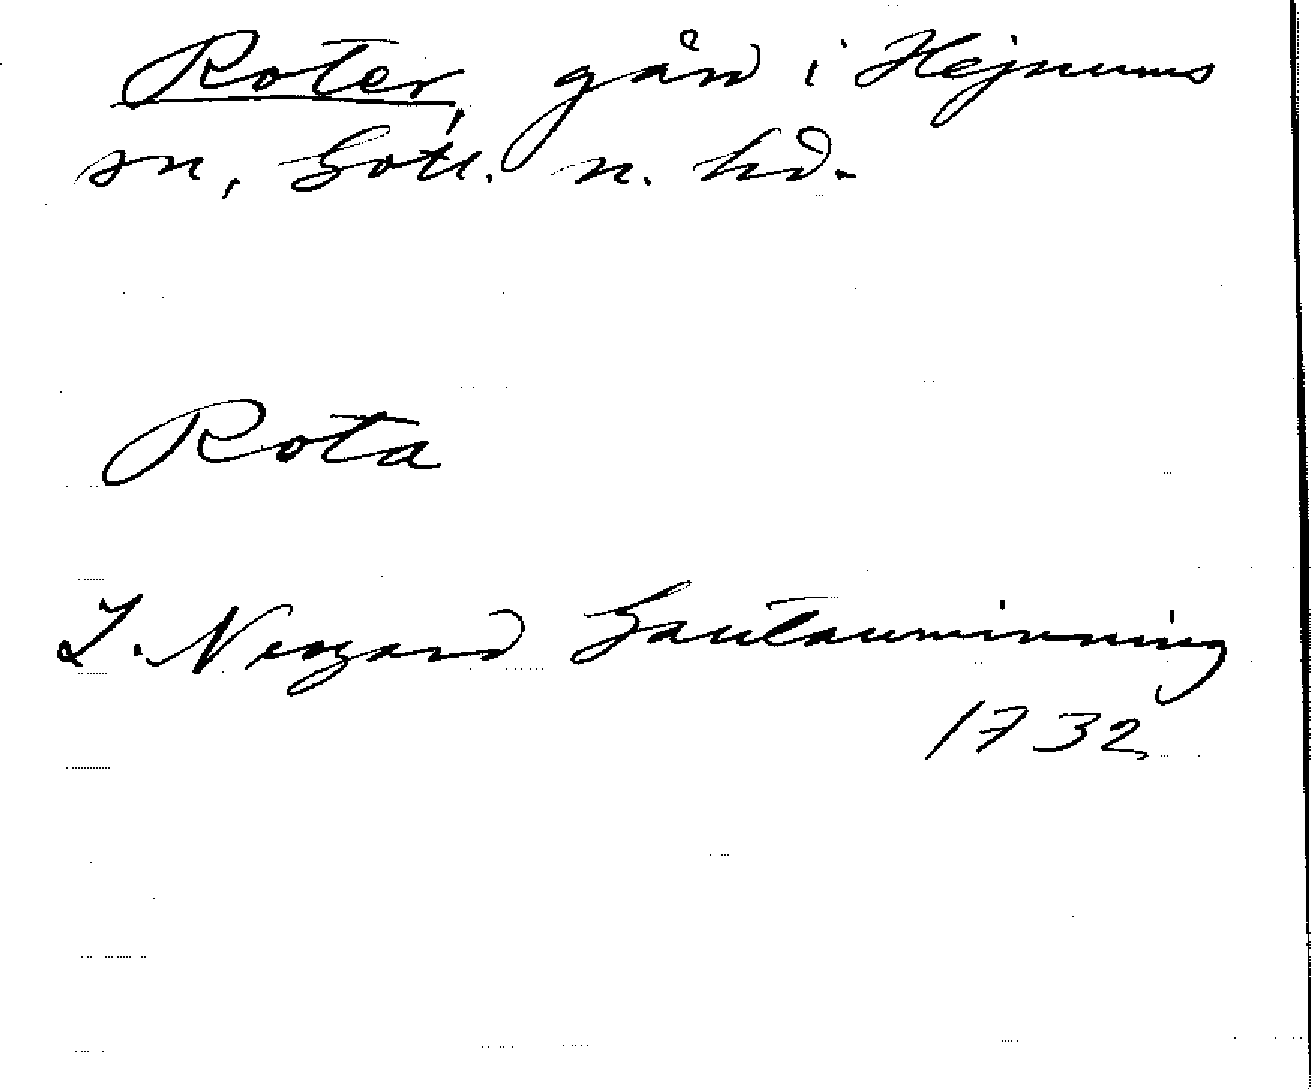 Roter, gård i Hejnums
sn, Gotl. n. hd.
Rota
J. Neogard Gautauminning
1732